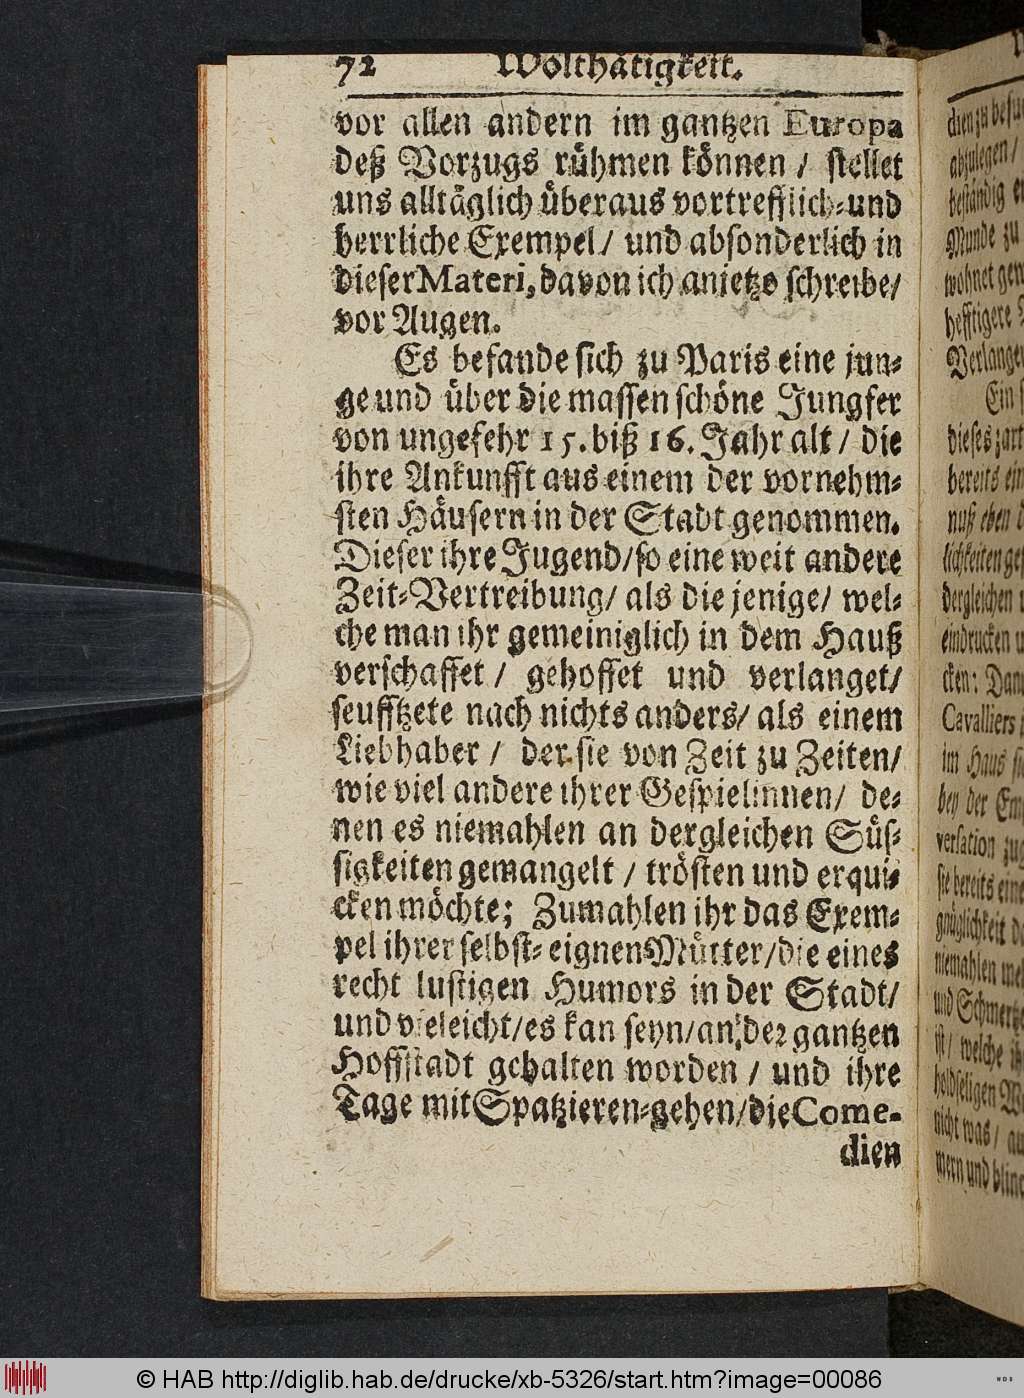 72 Wolthätigkeit.
vor allen andern im gantzen Europa
deß Vorzugs rühmen können / stellet
uns alltäglich überaus vortrefflich-und
herrliche Exempel / und absonderlich in
dieser Materi, davon ich anietzo schreibe /
vor Augen.
Es befande sich zu Paris eine jun-
ge und über die massen schöne Jungfer
von ungefehr 15. biß 16. Jahr alt / die
ihre Ankunfft aus einem der vornehm-
sten Häusern in der Stadt genommen.
Dieser ihre Jugend / so eine weit andere
Zeit-Vertreibung / als die jenige / wel-
che man ihr gemeiniglich in dem Hauß
verschaffet / gehoffet und verlanget /
seufftzete nach nichts anders / als einem
Liebhaber / der sie von Zeit zu Zeiten /
wie viel andere ihrer Gespielinnen / de-
nen es niemahlen an dergleichen Süs-
sigkeiten gemangelt / trösten und erqui-
cken möchte; Zumahlen ihr das Exem-
pel ihrer selbst-eignen Mutter / die eines
recht lustigen Humors in der Stadt /
und vieleicht / es kan seyn / an der gantzen
Hoffstadt gehalten worden / und ihre
Tage mit Spatzieren-gehen / die Come-
dien
dien zu
abzulegen /
beständig
Munde zu
wohnet
hefftigere
Verlangen
Ein
dieses zart
bereits
nuß eben
lichkeiten
dergleichen
eindrucken
cken:
Cavalliers
im Haus
bey der
versation
sie bereits eine
gnüglichkeit
niemahlen
und Schmertz
ist / welche
holdseligen
nicht was /
mern und
© HAB http://diglib.hab.de/drucke/xb-5326/start.htm?image=00086